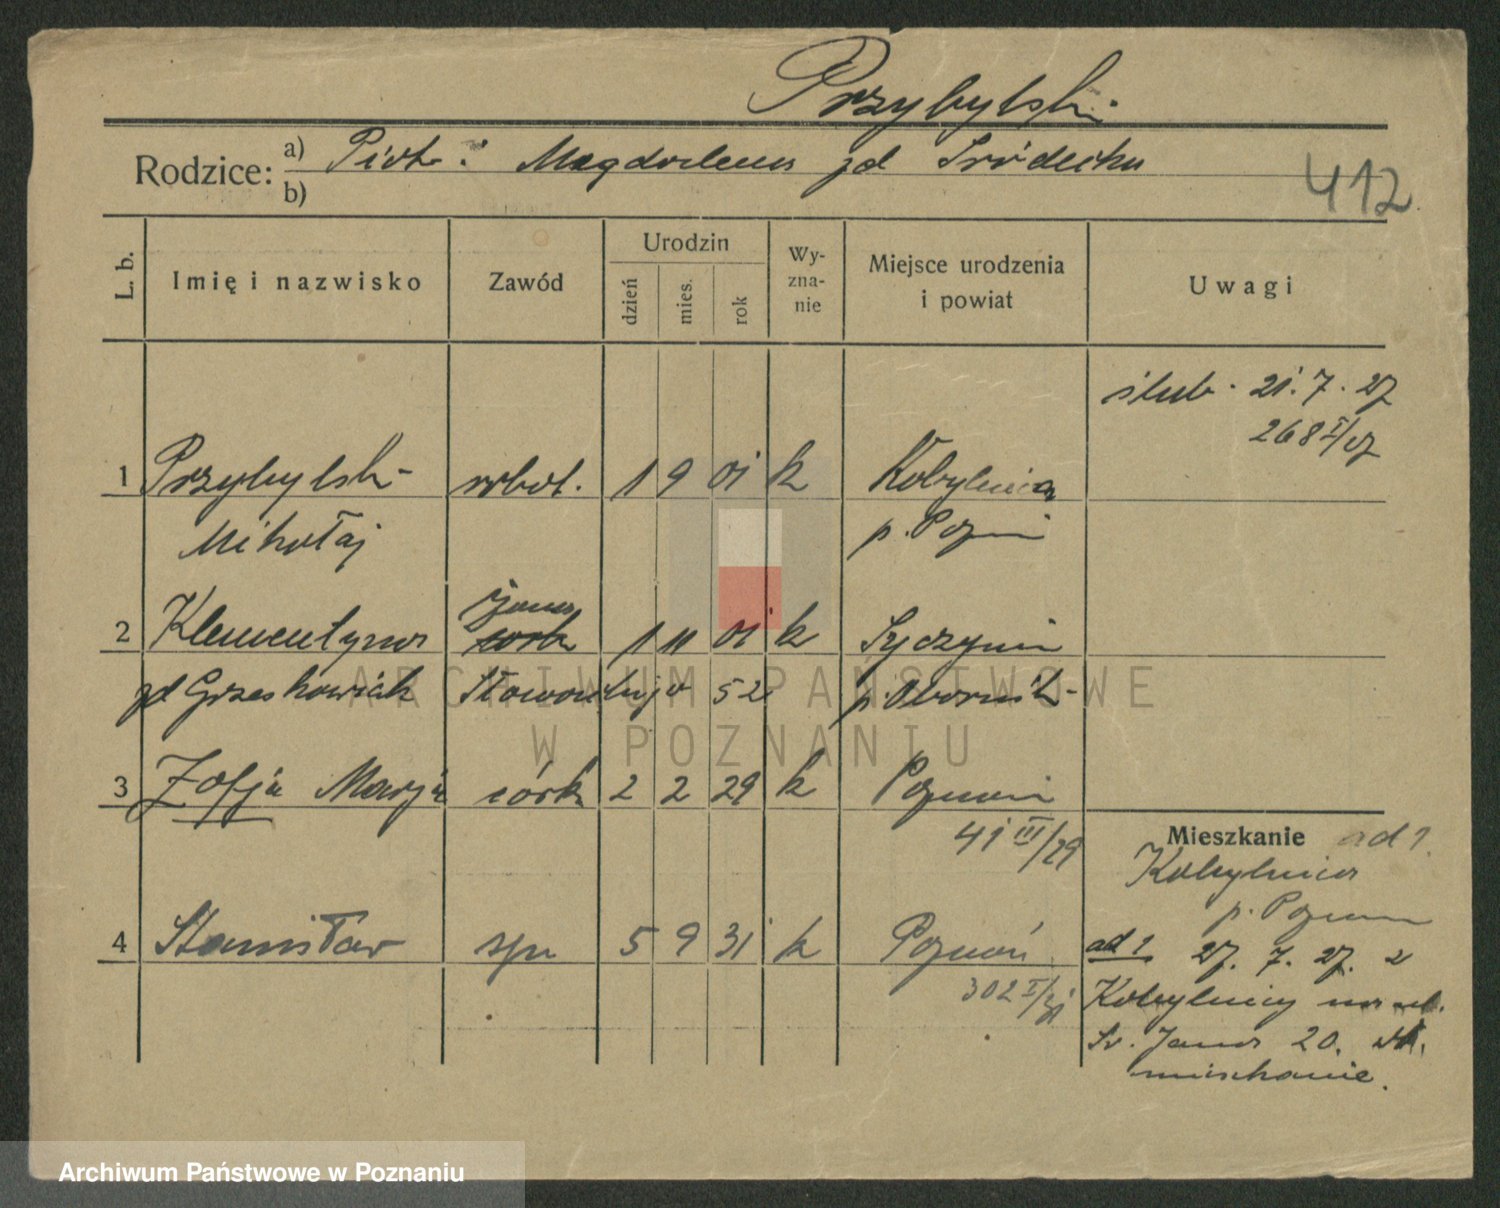 Przybylski
Rodzice: a) Piotr i Magdalena zd Śródecka
b)
412
L. b.
Imię i nazwisko
Zawód
Urodzin
dzień
mies.
rok
Wy-
zna-
nie
Miejsce urodzenia
i powiat
Uwagi
ślub. 21.7.27
268 I/27
1 Przybylski robot. 1 9 01 k Kobylnica
Mikołaj p. Pozn
żona
2 Klementyna córka 1 11 01 k
zd Grześkowiak 52 p. Oborniki
3 Zofja Marja córka 2 2 29 k Poznań
41 III/29
Mieszkanie ad 1.
Kobylnica
p. Poznań
4 Stanisław syn 5 9 31 k Poznań
302 I/31
ad 1. 27. 7. 27. z
Kobylnicy na ul.
Św. Jana 20.
mieszkanie.
ARCHIWUM PAŃSTWOWE
W POZNANIU
Archiwum Państwowe w Poznaniu